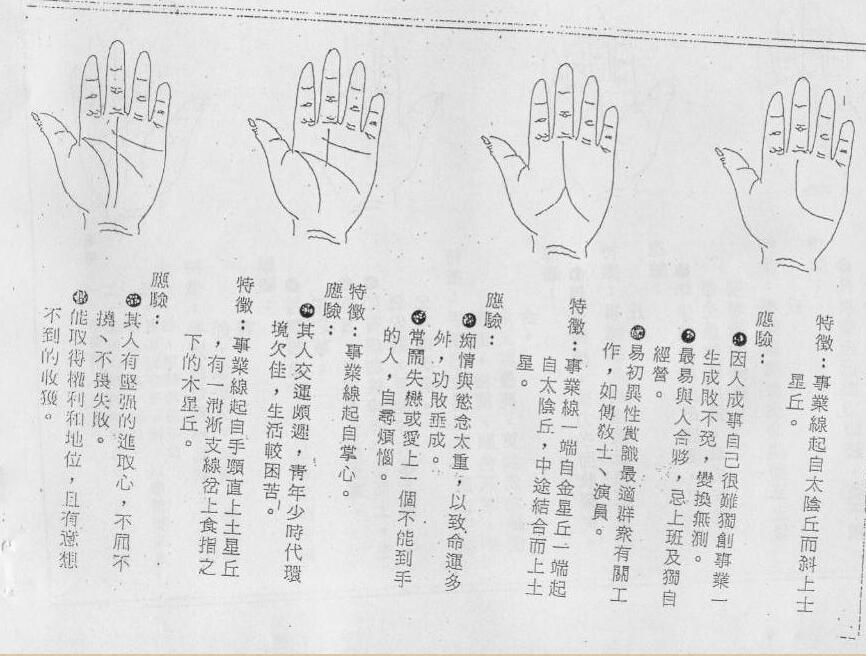 特徵：事業線起自太陰丘而斜上土
星丘。
應驗：
因人成事自己很難獨創事業一
生成敗不免，變換無測。
最易與人合夥，忌上班及獨自
經營。
易初異性賞識最適群衆有關工
作，如傳敎士、演員。
特徵：事業線一端自金星丘一端起
自太陰丘，中途結合而上土
星。
應驗：
痴情與慾念太重，以致命運多
舛，功敗垂成。
常鬧失戀或愛上一個不能到手
的人，自尋煩惱。
特徵：事業線起自掌心。
應驗：
其人交運頗遲，靑年少時代環
境欠佳，生活較困苦。
特徵：事業線起自手頸直上土星丘
，有一淅支線岔上食指之
下的木星丘。
應驗：
其人有堅强的進取心，不屈不
撓、不畏失敗。
能取得權利和地位，且有意想
不到的收獲。